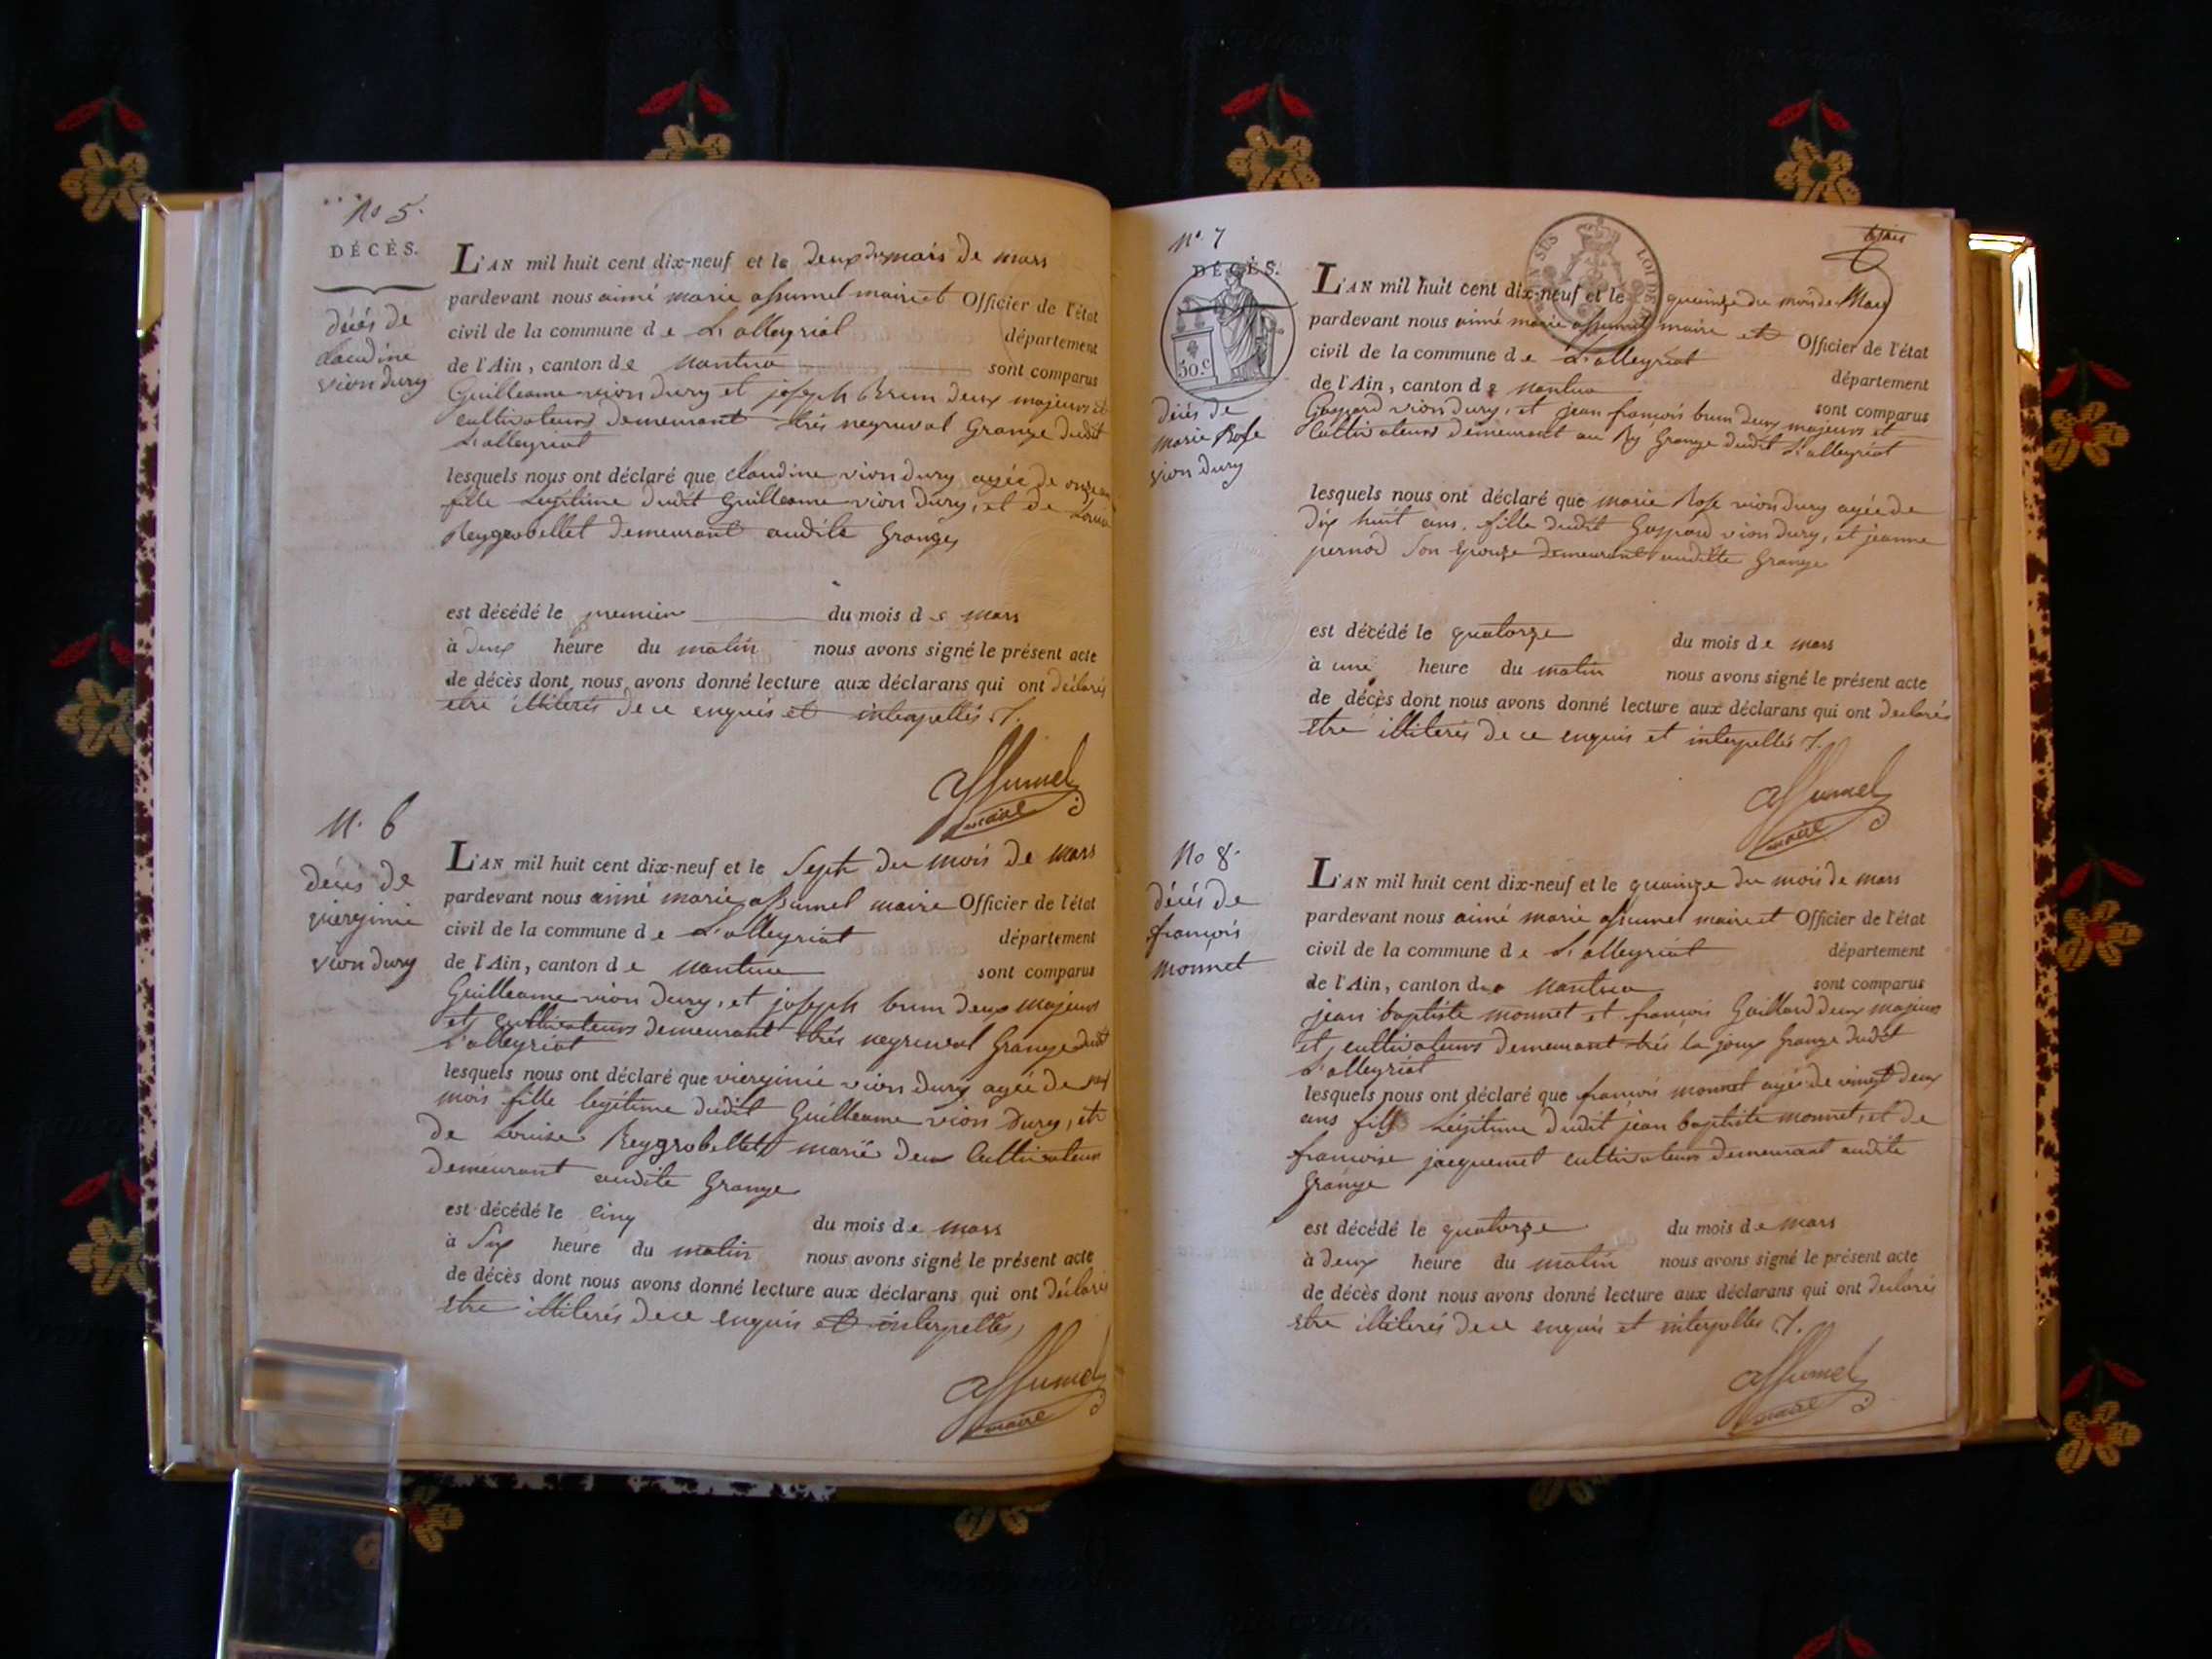 No 5.
DÉCÈS.
décés de
claudine
vion dury
L'AN mil huit cent dix-neuf et le deux du mois de mars
pardevant nous aimé marie assumel maire et Officier de l'état
civil de la commune de L'alleyriat département
de l'Ain, canton de nantua sont comparus
Guilleaume vion dury et joseph Brun deux majeurs et
cultivateurs demeurant très neyruval Grange dudit
L'alleyriat
lesquels nous ont déclaré que claudine vion dury agée de onze
fille Legitime dudit Guilleaume vion dury, et de Louise
Reygrobellet demeurant audite Grange
est décédé le premier du mois de mars
à deux heure du matin nous avons signé le présent acte
de décès dont nous avons donné lecture aux déclarans qui ont déclarés
etre illiterés de ce enquis et interpellés
assumel
maire
N. 6
décés de
viergínie
vion dury
L'AN mil huit cent dix-neuf et le Sept du mois de mars
pardevant nous aimé marie assumel maire Officier de l'état
civil de la commune de L'alleyriat département
de l'Ain, canton de nantua sont comparus
Guilleaume vion dury, et joseph brun deux majeurs
et cultivateurs demeurant très neyruval Grange dudit
L'alleyriat
lesquels nous ont déclaré que vierginie vion dury agée de
mois fille legitime dudit Guilleaume vion Dury, et
de Louise Reygrobellet marié deux Cultivateurs
demeurant audite Grange
est décédé le cinq du mois de mars
à Six heure du matin nous avons signé le présent acte
de décès dont nous avons donné lecture aux déclarans qui ont déclarés
etre illiterés de ce enquis et interpellés
assumel
maire
N° 7
DÉCÈS.
30.c
décés de
marie Rose
vion dury
L'AN mil huit cent dix-neuf et le quinze du mois de Mars
pardevant nous aimé marie assumel maire et Officier de l'état
civil de la commune de L'alleyriat département
de l'Ain, canton de nantua sont comparus
Gaspard vion dury, et jean françois brun deux majeurs et
Cultivateurs demeurant au Ry Grange dudit L'alleyriat
lesquels nous ont déclaré que marie Rose vion dury agée de
dix huit ans, fille dudit Gaspard vion dury, et jeanne
pernod son epouze demeurant audite Grange
est décédé le quatorze du mois de mars
à une heure du matin nous avons signé le présent acte
de décès dont nous avons donné lecture aux déclarans qui ont declarés
etre illiterés de ce enquis et interpellés
assumel
maire
No 8.
décés de
françois
monnet
L'AN mil huit cent dix-neuf et le quainze du mois de mars
pardevant nous aimé marie assumel maire et Officier de l'état
civil de la commune de L'alleyriat département
de l'Ain, canton de nantua sont comparus
jean baptiste monnet et françois Gaillard deux majeurs
et cultivateurs demeurant très la joux Grange dudit
L'alleyriat
lesquels nous ont déclaré que françois monnet agés de vingt deux
ans fils Légitime dudit jean baptiste monnet, et de
francoise jacquemet cultivateurs demeurant audite
Grange
est décédé le quatorze du mois de mars
à deux heure du matin nous avons signé le présent acte
de décès dont nous avons donné lecture aux déclarans qui ont declarés
etre illiterés de ce enquis et interpelles
assumel
maire